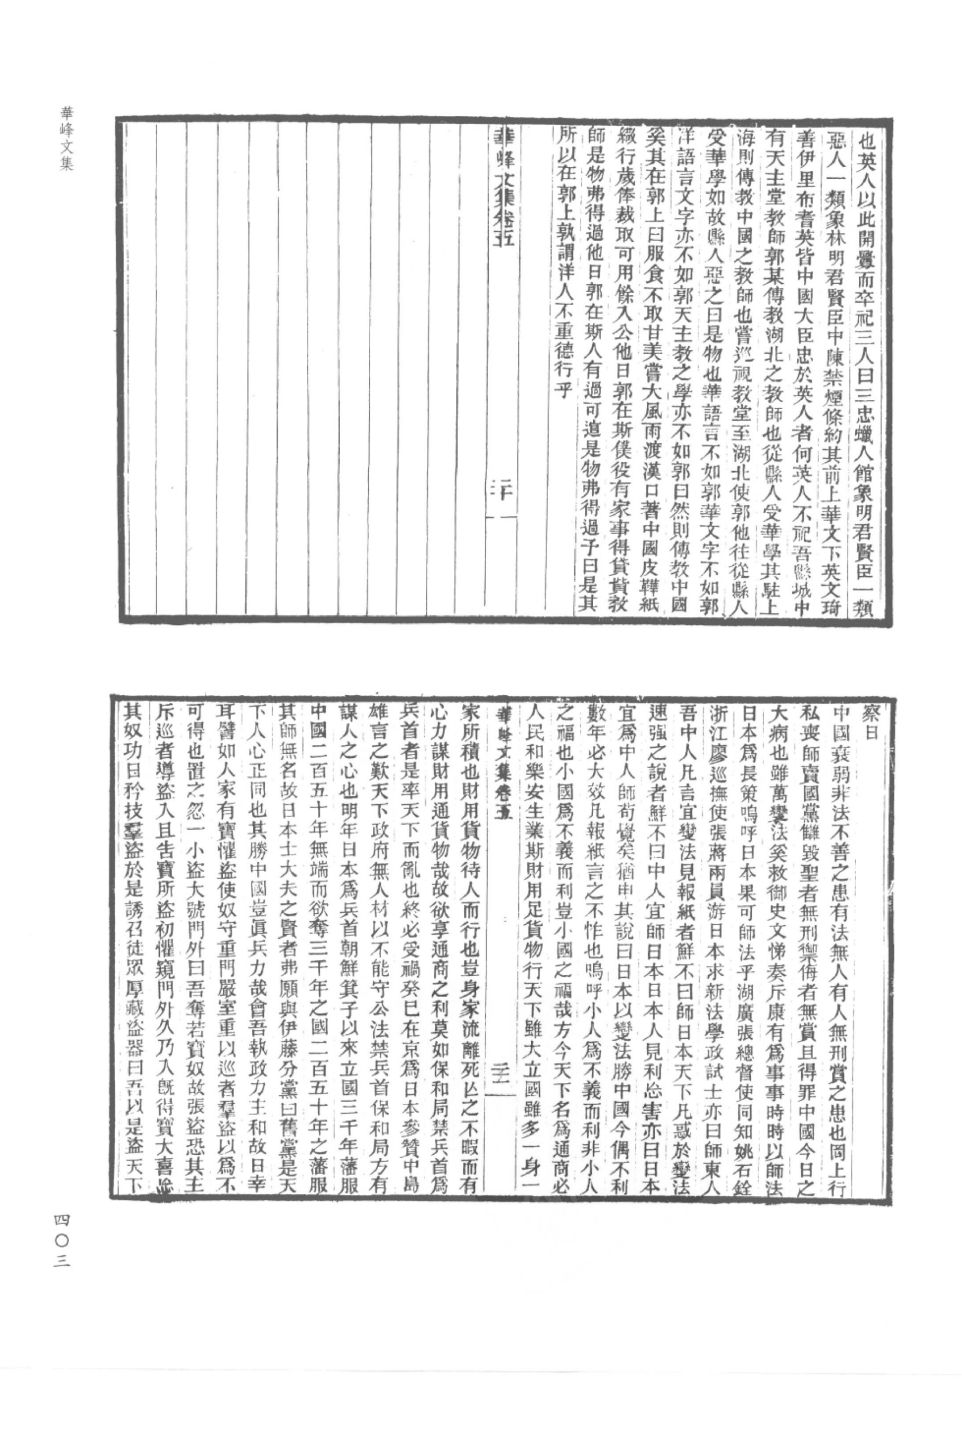 華峰文集
也英人以此開釁而卒祀三人曰三忠蠟人館象明君賢臣一類
惡人一類象林明君賢臣中陳禁煙條約其前上華文下英文琦
善伊里布耆英皆中國大臣忠於英人者何英人不祀吾縣城中
有天主堂教師郭某傳教湖北之教師也從縣人受華學其駐上
海則傳教中國之教師也嘗巡視教堂至湖北使郭他往從縣人
受華學如故縣人惡之曰是物也華語言不如郭華文字不如郭
洋語言文字亦不如郭天主教之學亦不如郭曰然則傳教中國
奚其在郭上曰服食不取甘美嘗大風雨渡漢口著中國皮鞾紙
繖行歲俸裁取可用餘入公他日郭在斯僕役有家事得貸貲教
師是物弗得過他日郭在斯人有過可逭是物弗得過予曰是其
所以在郭上孰謂洋人不重德行乎
華峰文集卷五
三十
察日
中國衰弱非法不善之患有法無人有人無刑賞之患也罔上行
私喪師賣國黨讎毀聖者無刑禦侮者無賞且得罪中國今日之
大病也雖萬變法奚救御史文悌奏斥康有爲事事時時以師法
日本爲長策嗚呼日本果可師法乎湖廣張總督使同知姚石銓
浙江廖巡撫使張蔣兩員游日本求新法學政試士亦曰師東人
吾中人凡言宜變法見報紙者鮮不曰師日本天下凡惑於變法
速强之說者鮮不曰中人宜師日本日本人見利忘害亦曰日本
宜爲中人師苟覺矣猶由其說曰日本以變法勝中國今偶不利
數年必大效凡報紙言之不怍也嗚呼小人爲不義而利非小人
之福也小國爲不義而利豈小國之福哉方今天下名爲通商必
人民和樂安生業斯財用足貨物行天下雖大立國雖多一身一
華峰文集卷五
三十一
家所積也財用貨物待人而行也豈身家流離死亾之不暇而有
心力謀財用通貨物哉故欲享通商之利莫如保和局禁兵首爲
兵首者是率天下而亂也終必受禍癸巳在京爲日本參贊中島
雄言之歎天下政府無人材以不能守公法禁兵首保和局方有
謀人之心也明年日本爲兵首朝鮮箕子以來立國三千年藩服
中國二百五十年無端而欲奪三千年之國二百五十年之藩服
其師無名故日本士大夫之賢者弗願與伊藤分黨曰舊黨是天
下人心正同也其勝中國豈眞兵力哉會吾執政力主和故日幸
耳譬如人家有寶懼盜使奴守重門嚴室重以巡者羣盜以爲不
可得也置之忽一小盜大號門外曰吾奪若寶奴故張盜恐其主
斥巡者導盜入且告寶所盜初懼窺門外久乃入旣得寶大喜忘
其奴功日矜技羣盜於是誘召徒眾厚藏盜器曰吾以是盜天下
四〇三